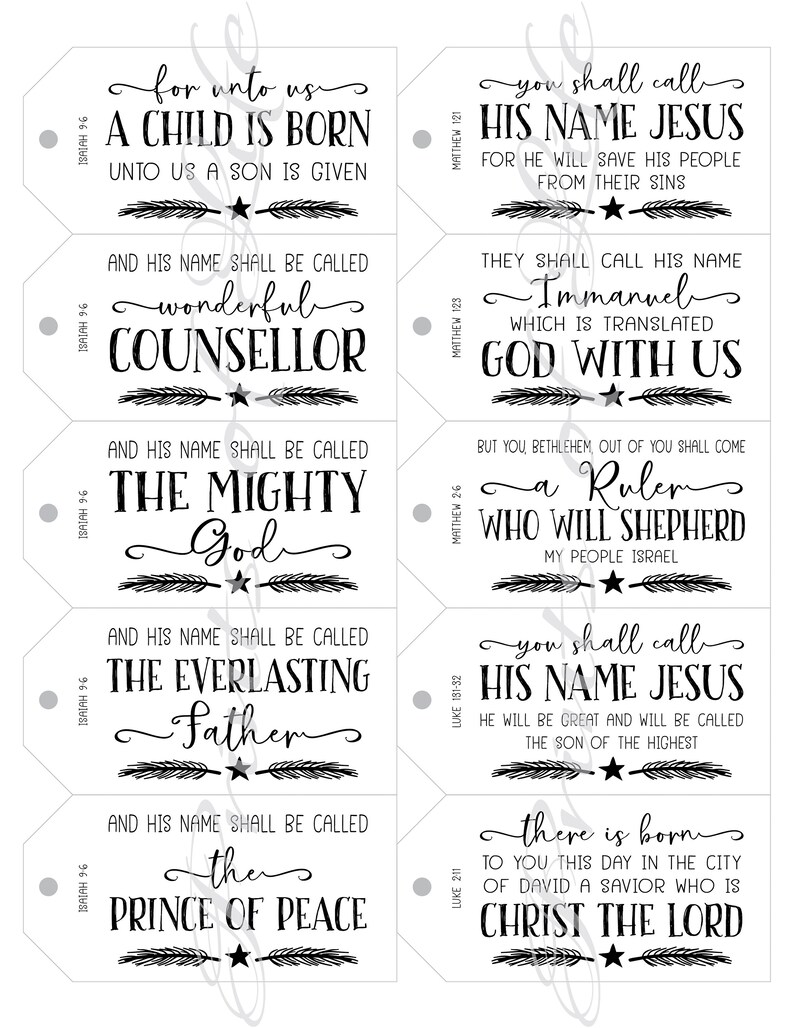 for unto us
A CHILD IS BORN
UNTO US A SON IS GIVEN
ISAIAH 9:6
you shall call
HIS NAME JESUS
FOR HE WILL SAVE HIS PEOPLE
FROM THEIR SINS
MATTHEW 1:21
AND HIS NAME SHALL BE CALLED
wonderful
COUNSELLOR
ISAIAH 9:6
THEY SHALL CALL HIS NAME
Immanuel
WHICH IS TRANSLATED
GOD WITH US
MATTHEW 1:23
AND HIS NAME SHALL BE CALLED
THE MIGHTY
God
ISAIAH 9:6
BUT YOU, BETHLEHEM, OUT OF YOU SHALL COME
a Ruler
WHO WILL SHEPHERD
MY PEOPLE ISRAEL
MATTHEW 2:6
AND HIS NAME SHALL BE CALLED
THE EVERLASTING
Father
ISAIAH 9:6
you shall call
HIS NAME JESUS
HE WILL BE GREAT AND WILL BE CALLED
THE SON OF THE HIGHEST
LUKE 1:31-32
AND HIS NAME SHALL BE CALLED
the
PRINCE OF PEACE
ISAIAH 9:6
there is born
TO YOU THIS DAY IN THE CITY
OF DAVID A SAVIOR WHO IS
CHRIST THE LORD
LUKE 2:11